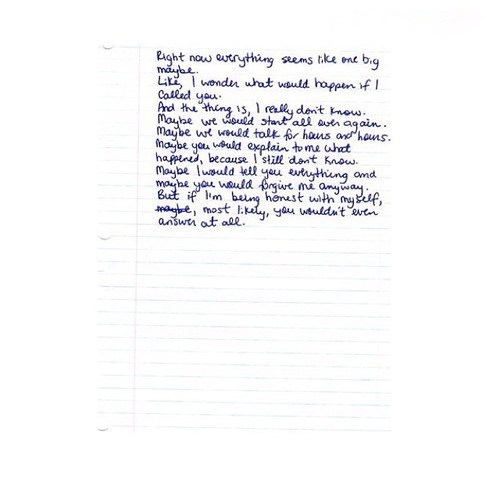 Right now everything seems like one big
maybe.
Like, I wonder what would happen if I
called you.
And the thing is, I really don't know.
Maybe we would start all over again.
Maybe we would talk for hours and hours.
Maybe you would explain to me what
happened, because I still don't know.
Maybe I would tell you everything and
maybe you would forgive me anyway.
But if I'm being honest with myself,
maybe, most likely, you wouldn't even
answer at all.